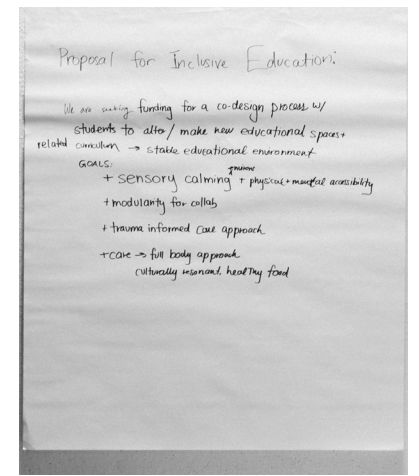 Proposal for Inclusive Education:
We are seeking funding for a co-design process w/
students to alter / make new educational spaces +
related curriculum → stable educational environment
GOALS:
+ sensory calming + physical + mental accessibility
+ modularity for collab
+ trauma informed care approach
+ care → full body approach
culturally resonant, healthy food